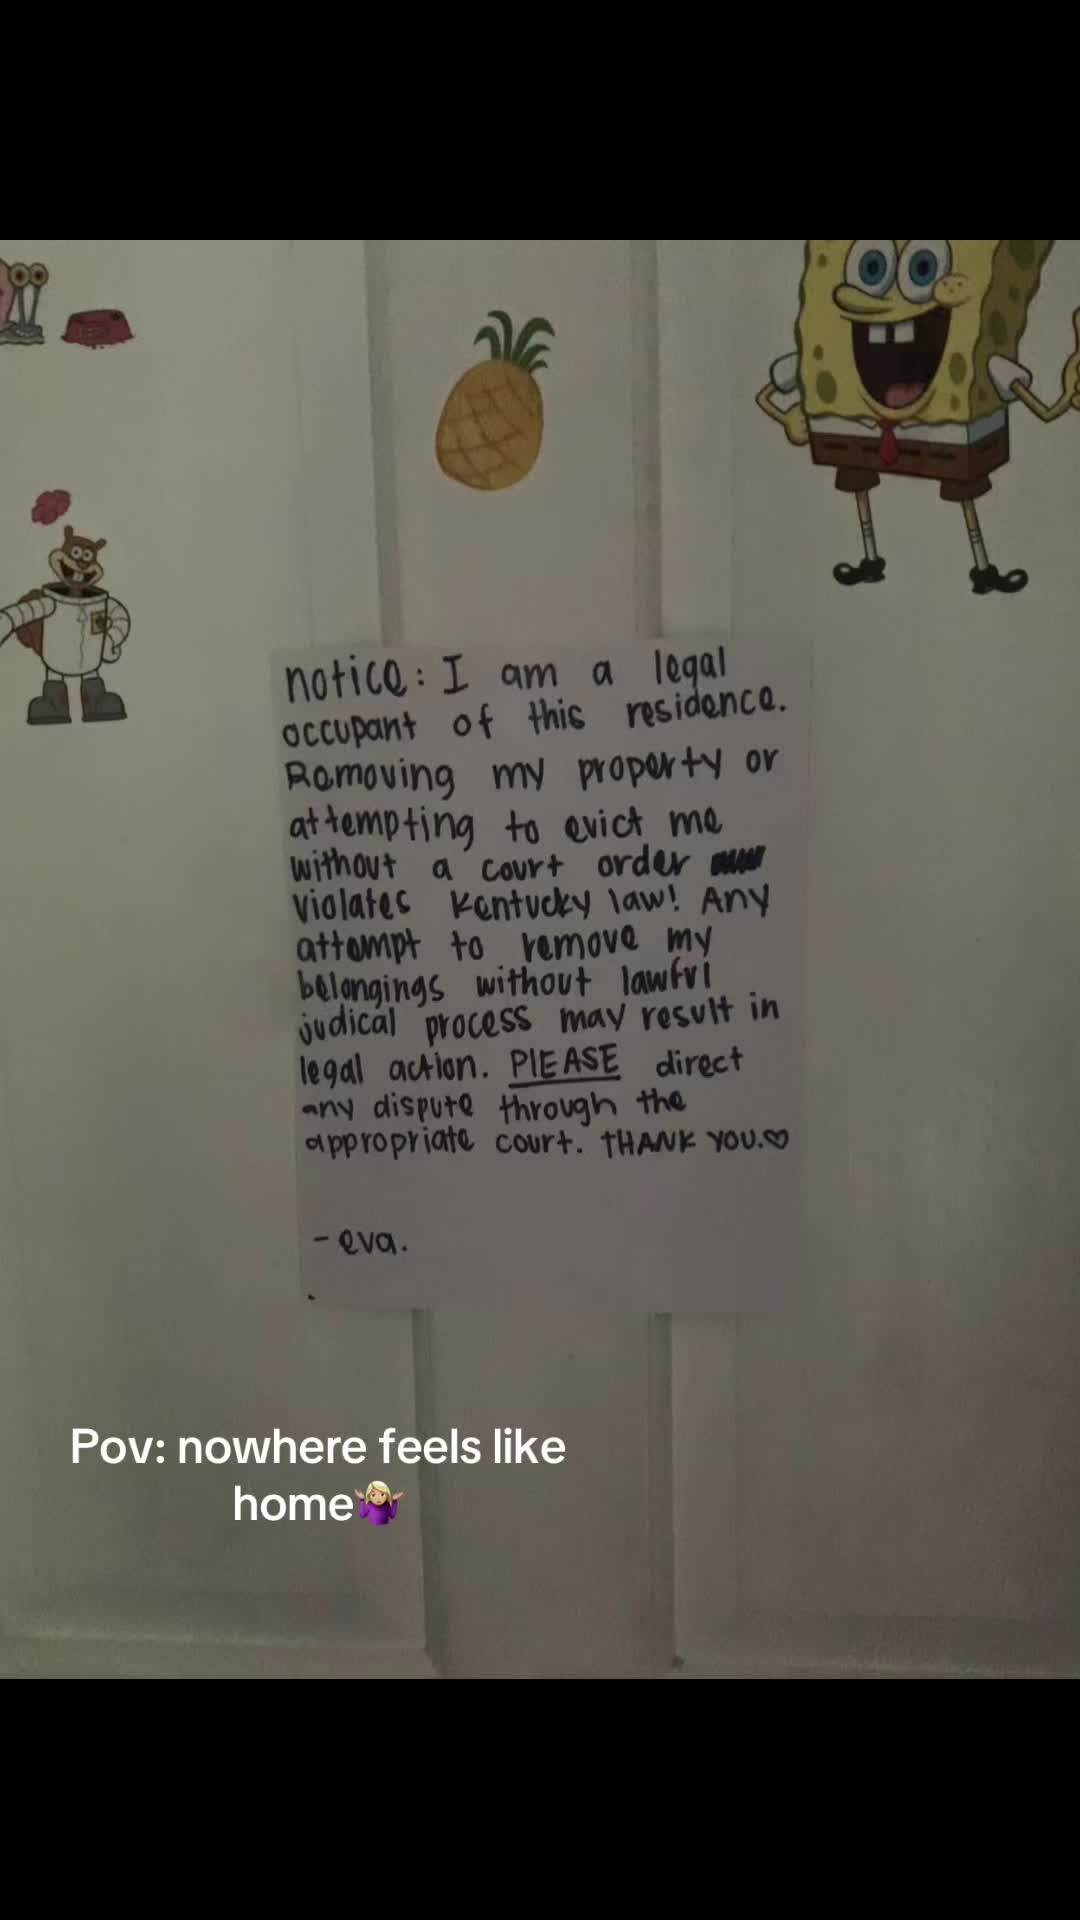 notice: I am a legal
occupant of this residence.
Removing my property or
attempting to evict me
without a court order
violates Kentucky law! Any
attempt to remove my
belongings without lawful
judical process may result in
legal action. PlEASE direct
any dispute through the
appropriate court. THANK YOU.♡
- eva.
Pov: nowhere feels like
home🤷🏼‍♀️